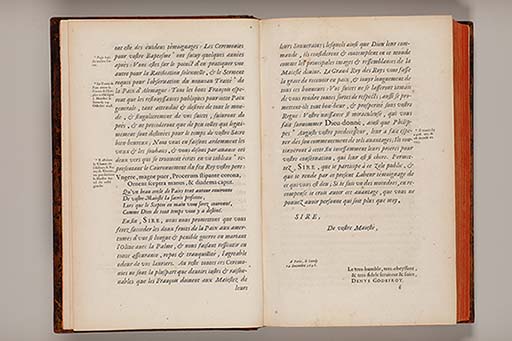 ont esté des évidens témoignages: Les Ceremonies
pour vostre Baptesme ont suivy quelques années
apres: Vous estes sur le poinct d'en pratiquer une
autre pour la Ratification solennelle, & le Serment
requis pour l'observation du nouveau Traité de
la Paix d'Alemagne: Tous les bons François esperent
que les resjouïssances publiques pour une Paix
generale, tant attenduë & desirée de tout le monde,
& singulierement de vos sujets, suivront de
prés, & ne precederont que de peu celles qui legitimement
sont destinées pour le temps de vostre Sacre
bien-heureux: Nous vous en faisons ardemment les
vœux & les souhaits, & vous disons par avance ces
deux vers que se trouvent écrits en un tableau
representant le Couronnement du feu Roy vostre pere:
Vngere, magne puer, Procerum stipante corona,
Omnem sceptra manus, & diadema caput.
Qu'un beau cercle de Pairs tout autour couronne
De vostre Majesté la sacrée personne,
Lors que le Sceptre en main vous serez couronné,
Comme Dieu de tout temps vous y a destiné.
Enfin, SIRE, nous nous promettons que vous
ferez succeder les doux fruicts de la Paix aux amertumes
d'une si longue & penible guerre en mariant
l'Olive avec la Palme, & nous faisant ressentir en
toute asseurance, repos & tranquillité, l'agreable
odeur de vos lauriers. Au reste toutes ces Ceremonies
ne sont la pluspart que devoirs justes & raisonnables
que les François doivent aux Majestez de
leurs
leurs Souverains; lesquels ainsi que Dieu leur commande,
ils considerent & contemplent en ce monde
comme les principales images & ressemblances de la
Majesté divine. Le Grand Roy des Roys vous fasse
la grace de croistre en pieté, & toute longuement de
tous ces honneurs: Vos sujets ne se lasseront jamais
de vous rendre toutes sortes de respects; ainsi se promettent-ils
tout bon-heur, & prosperité sous vostre
Regne: Vostre naissance si miraculeuse, qui vous
fait surnommer Dieu-donné, ainsi que Philippes
Auguste vostre predecesseur, leur a fait esperer
dés son commencement de tels avantages; Ils continuëront
à cette fin incessamment leurs prieres pour
vostre conservation, qui leur est si chere. Permettez,
SIRE, que je participe à ce zele public, &
que je rende par ce present Labeur témoignage de
ce que vous est deu; Si je suis veu des mondes, en recompense
je croit autre cet avantage, que vous ne
pouvez avoir personne qui soit plus que moy,
SIRE,
De vostre Majesté,
A Paris, le Lundy
14 Decembre 1648.
Le tres-humble, tres-obeyssant,
& tres-fidele serviteur & sujet,
DENYS GODEFROY.